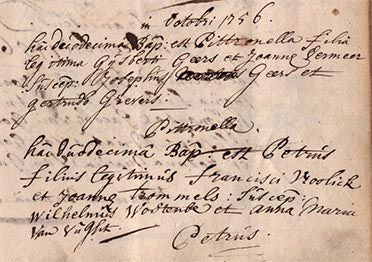 in Octobri 1756.
hac duodecima Bap: est Pittronella filia
legitima Gosberti Geers et Joanna Vermeer
suscep: Josephus Geers et
gertrudis Grevers.
Pittronella.
hac duodecima Bap: est Petrus
filius legitimus Francisci Roolick
et Joanna Trommels: suscep:
Wilhelmus et Anna Maria
Van Vught.
Petrus.